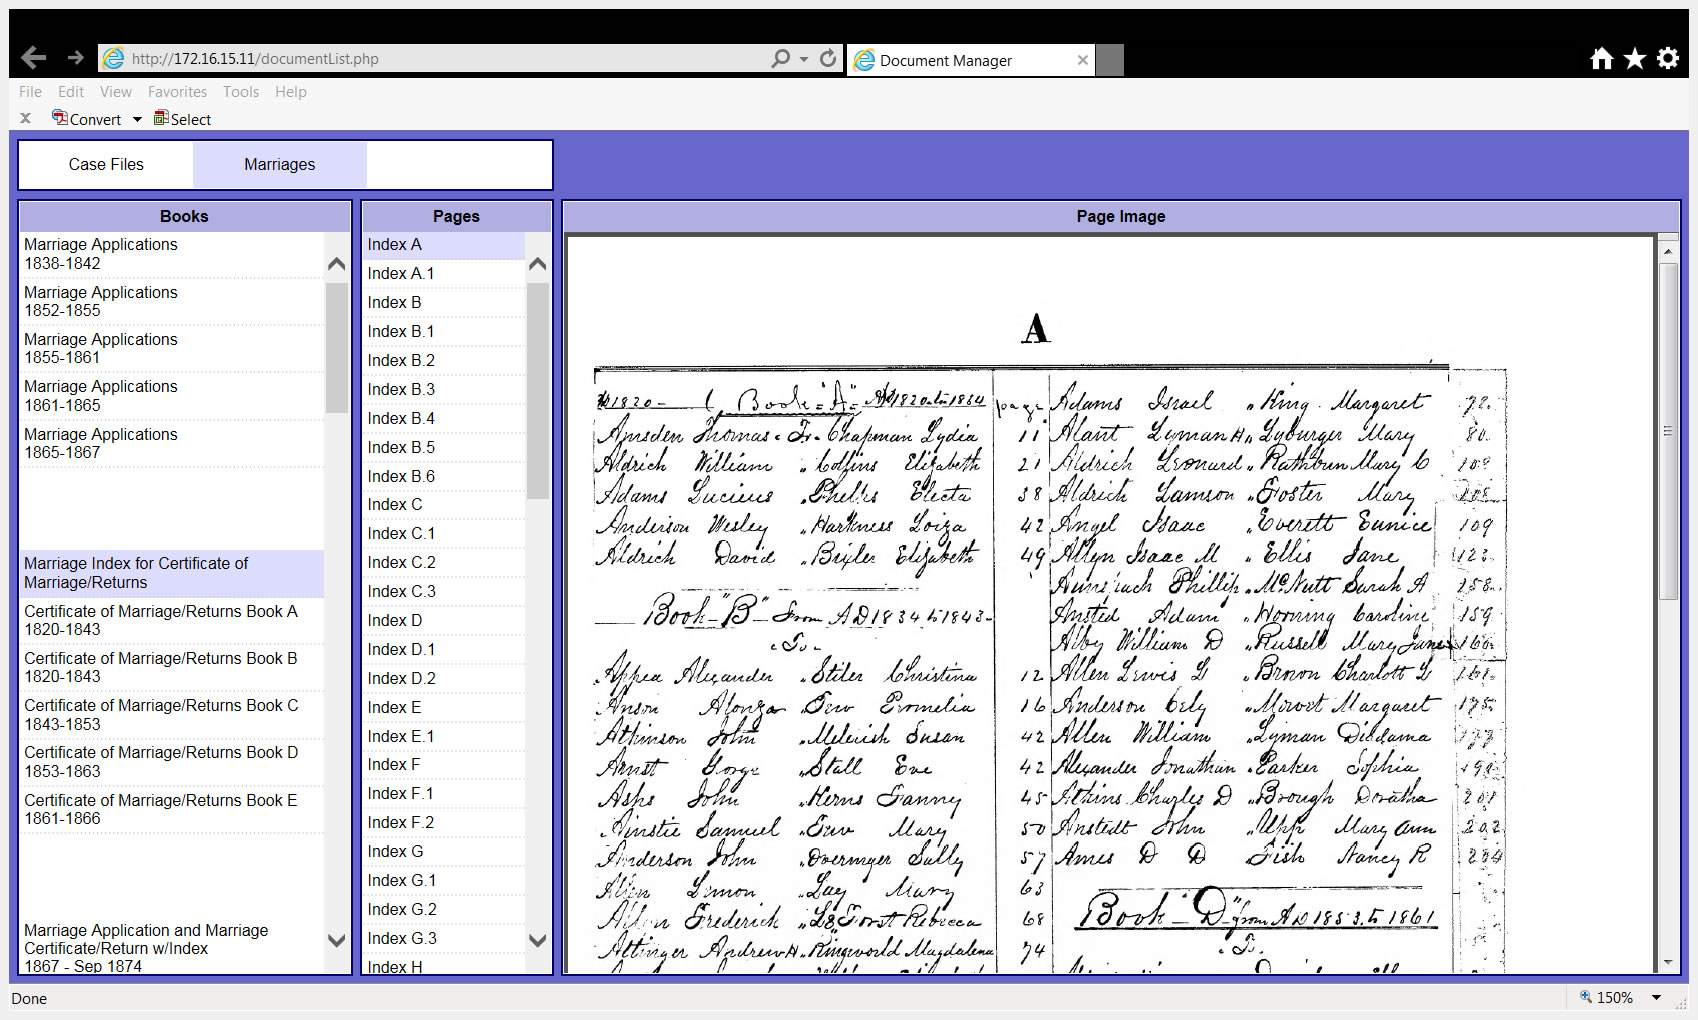 http://172.16.15.11/documentList.php
Document Manager
File Edit View Favorites Tools Help
x Convert Select
Case Files Marriages
Books
Marriage Applications
1838-1842
Marriage Applications
1852-1855
Marriage Applications
1855-1861
Marriage Applications
1861-1865
Marriage Applications
1865-1867
Marriage Index for Certificate of
Marriage/Returns
Certificate of Marriage/Returns Book A
1820-1843
Certificate of Marriage/Returns Book B
1820-1843
Certificate of Marriage/Returns Book C
1843-1853
Certificate of Marriage/Returns Book D
1853-1863
Certificate of Marriage/Returns Book E
1861-1866
Marriage Application and Marriage
Certificate/Return w/Index
1867 - Sep 1874
Pages
Index A
Index A.1
Index B
Index B.1
Index B.2
Index B.3
Index B.4
Index B.5
Index B.6
Index C
Index C.1
Index C.2
Index C.3
Index D
Index D.1
Index D.2
Index E
Index E.1
Index F
Index F.1
Index F.2
Index G
Index G.1
Index G.2
Index G.3
Index H
Page Image
A
1820 - ( Book "A" AD 1820 to 1834 page
Amsden Thomas " To " Chapman Lydia 11
Aldrich William " Collins Elizabeth 21
Adams Lucieus " Phelps Electa 38
Anderson Wesley " Harkness Loiza 42
Aldrich David " Bixler Elizabeth 49
Book "B" From AD 1834 to 1843
" To "
Appea Alexander " Stiler Christina 12
Anson Alonzo " Few Permelia 16
Atkinson John " Melerish Susan 42
Arnst Gorge " Stall Eve 42
Ashs John " Kerns Fanny 45
Ainstie Samuel " Few Mary 50
Anderson John " Overmyer Sally 57
Allen Lemon " Lay Mary 63
Allen Frederick " Forst Rebecca 68
Attinger Andrew H " Ringworld Magdalena 74
Adams Israel " King Margaret 72
Alant Lyman H " Lyburger Mary 80
Aldrich Leonard " Rathbun Mary C 109
Aldrich Lamson " Foster Mary
Angel Isaac " Everett Eunice 109
Allyn Isaac M " Ellis Jane 123
Phillip " McNutt Sarah A 158
Ansted Adam " Horning Caroline 159
Alby William D " Russell Mary Jane 160
Allen Lewis L " Brown Charlott L 161
Anderson Cely " Margaret 175
Allen William " Lyman Diddama 177
Alexander Jonathan " Parker Sophia
Atkins Charles D " Brough Doratha 201
Anstedt John " Upp Mary Ann 202
Ames D D " Fish Nancy R 204
Book "D" from AD 1853 to 1861
" To "
Done
150%